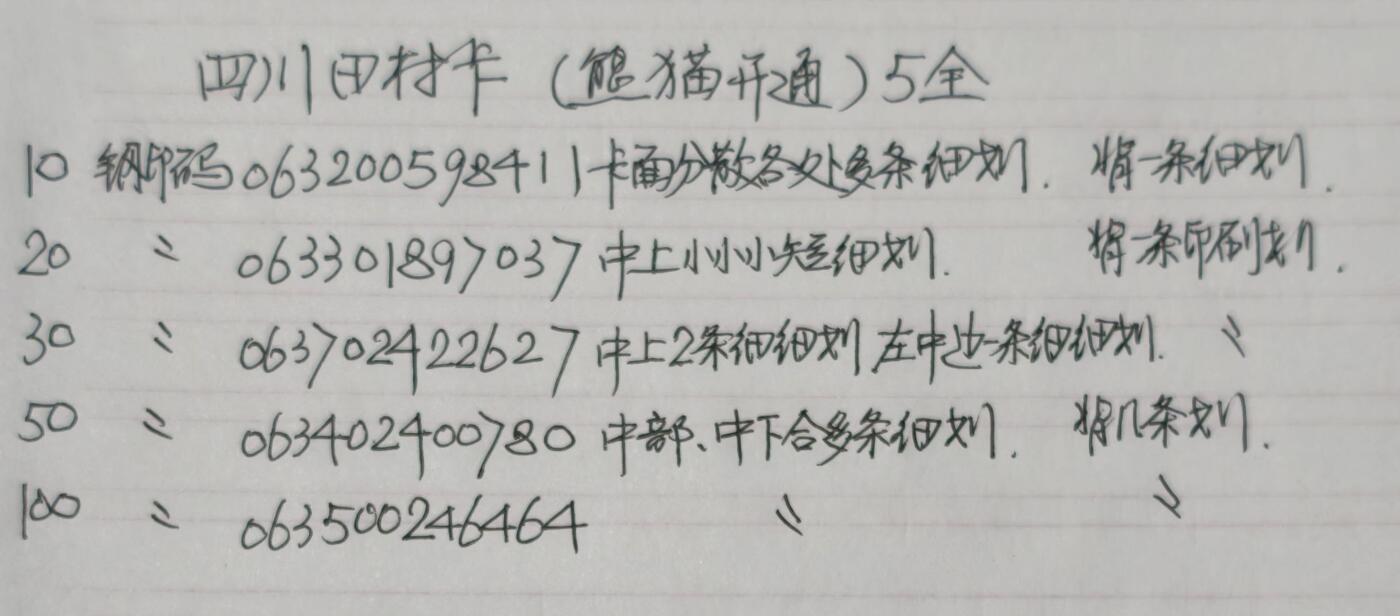 四川田村卡（熊猫开通）5全
10 钢印码063200598411卡面分散各处多条细划. 背一条细划.
20 〃 063301897037中上小小小短细划. 背一条印刷划.
30 〃 063702422627中上2条细细划,左中边一条细细划. 〃
50 〃 063402400780中部、中下合多条细划. 背几条划.
100 〃 063500246464 〃 〃